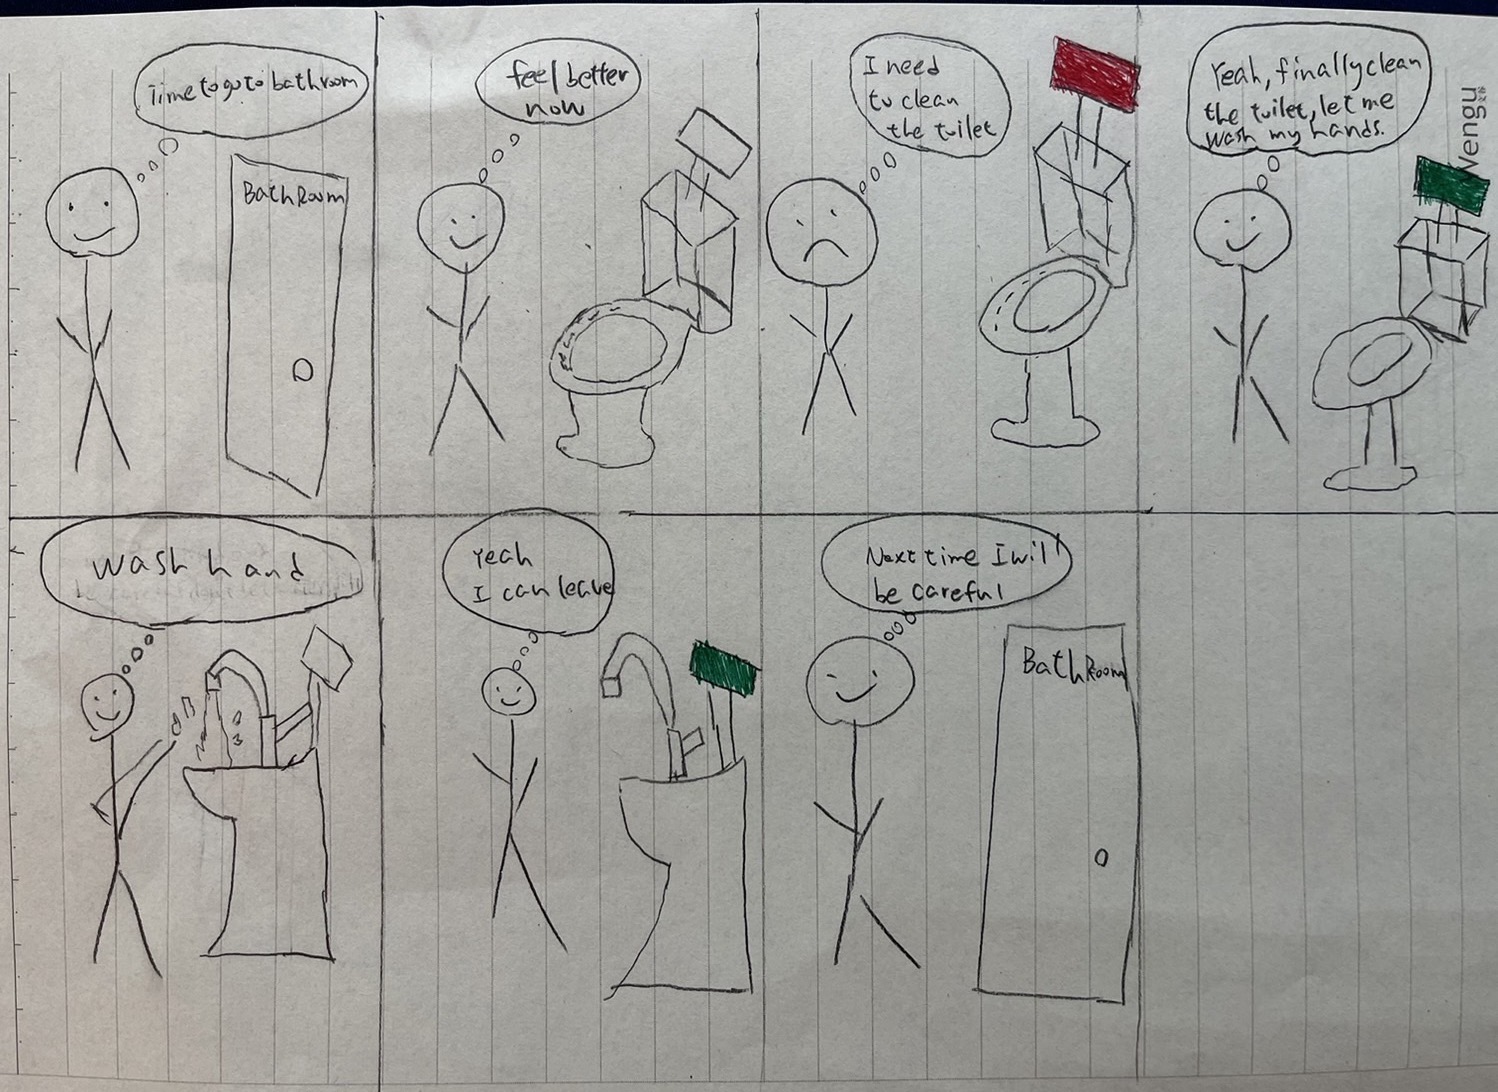 Time to go to bathroom
BathRoom
feel better
now
I need
to clean
the tuilet
Yeah, finally clean
the tuilet, let me
wash my hands.
wash hand
Yeah
I can leave
Next time I will
be careful
BathRoom